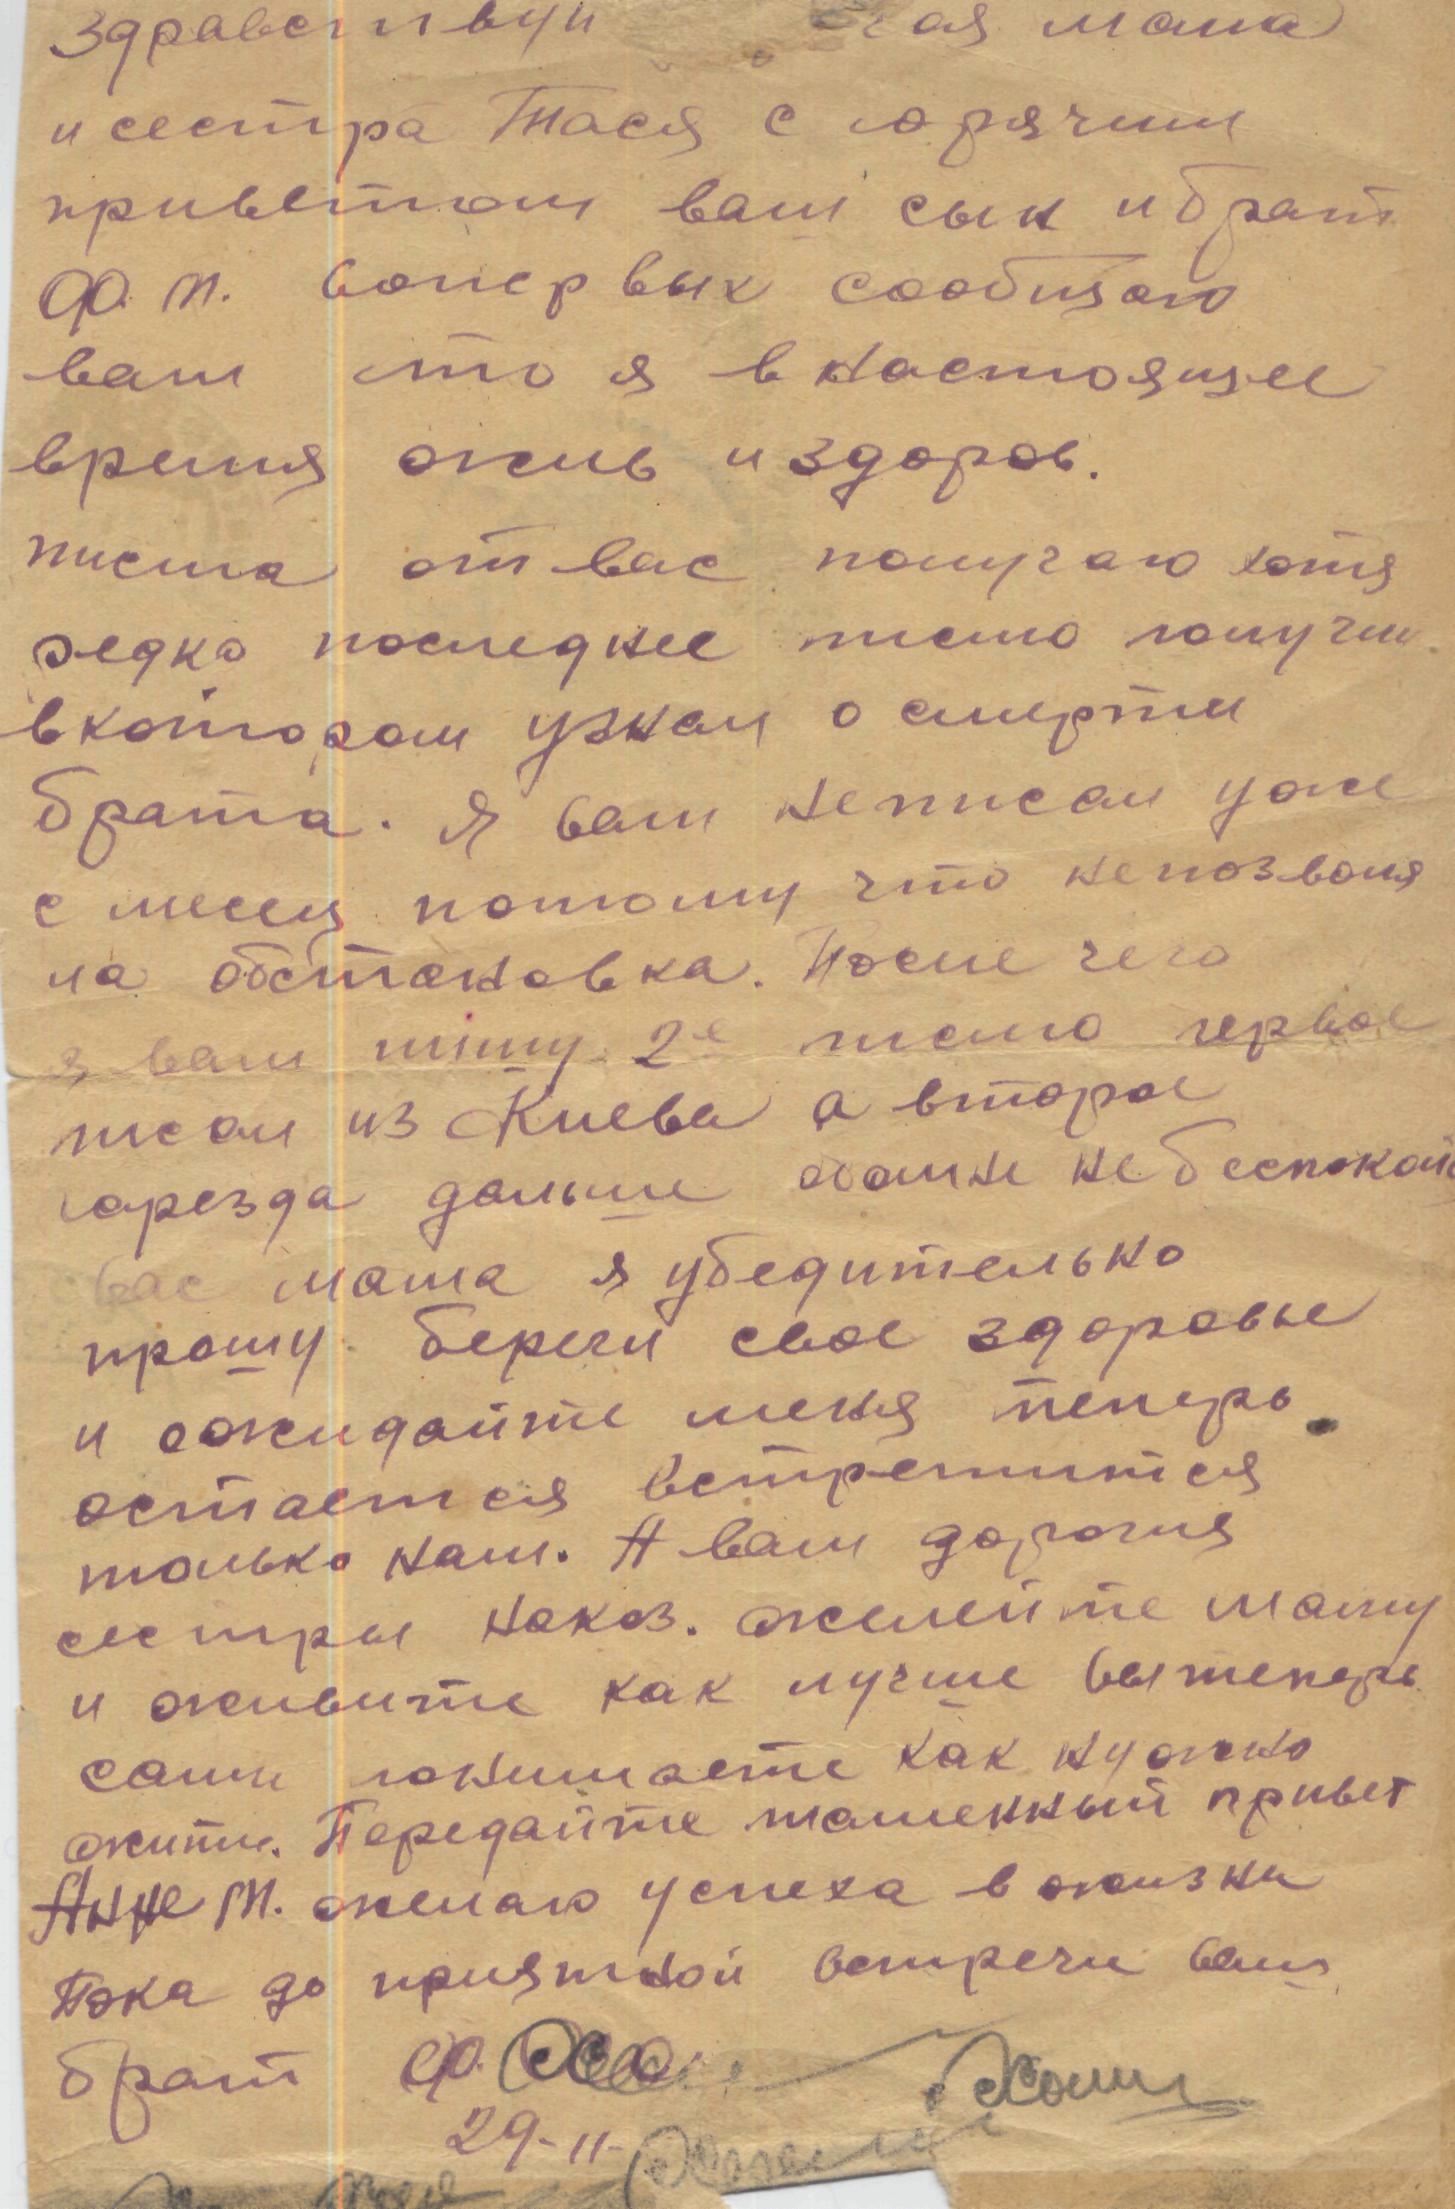 Здравствуй мама
и сестра Тася с горячим
приветом ваш сын и брат
Ф. М. вопервых сообщаю
вам что я в настоящее
время жив и здоров.
писма от вас получаю хотя
редко последнее писмо получил
в котором узнал о смерти
брата. Я вам неписал уже
с месец потому что непозволя
ла обстановка. После чего
я вам пишу 2е писмо первое
писал из Киева а второе
дальше не беспокои
вас мама я убедительно
прошу береги свое здоровье
и ожидайте меня теперь
остается встретится
только нам. А вам дорогия
сестры наказ. жалейте маму
и живите как лучше вы теперь
сами понимаете как нужно
жить. Передайте пламенный привет
Анне М. желаю успеха в жизни
Пока до приятной встречи ваш
брат Ф.
29-11-